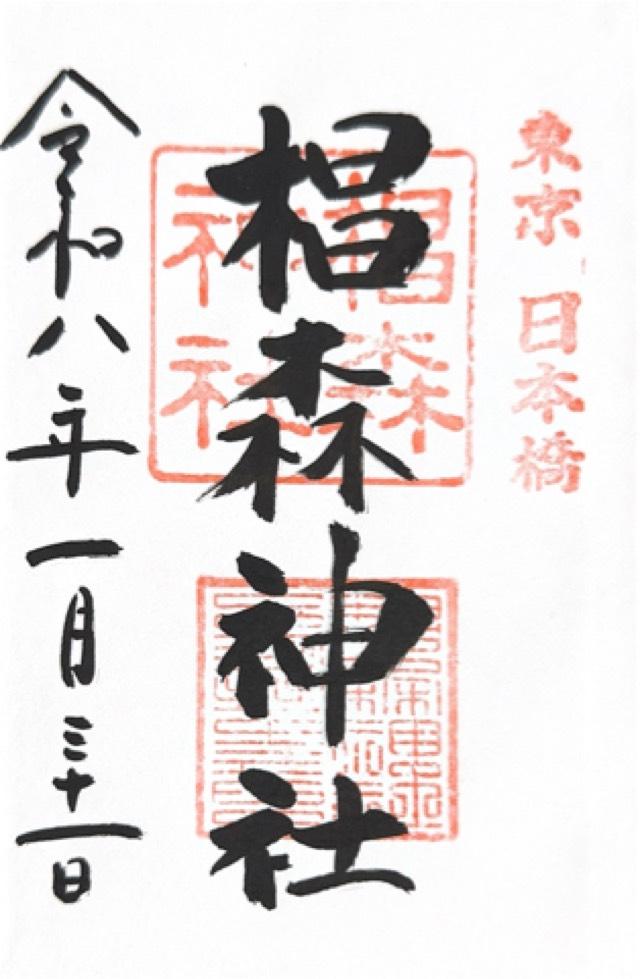 東京 日本橋
椙森神社
椙森
神社
令和八年一月三十一日